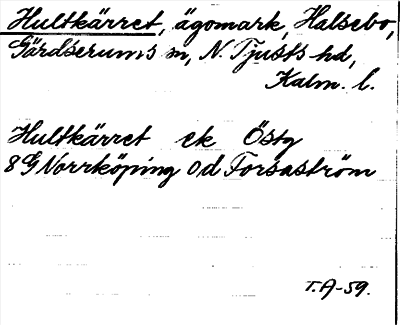 Hultkärret, ägomark, Halsebo,
Gärdserums sn, N. Tjusts hd,
Kalm. l.
Hultkärret ek Östg
8 G Norrköping 0d Forsaström
T.A-59.